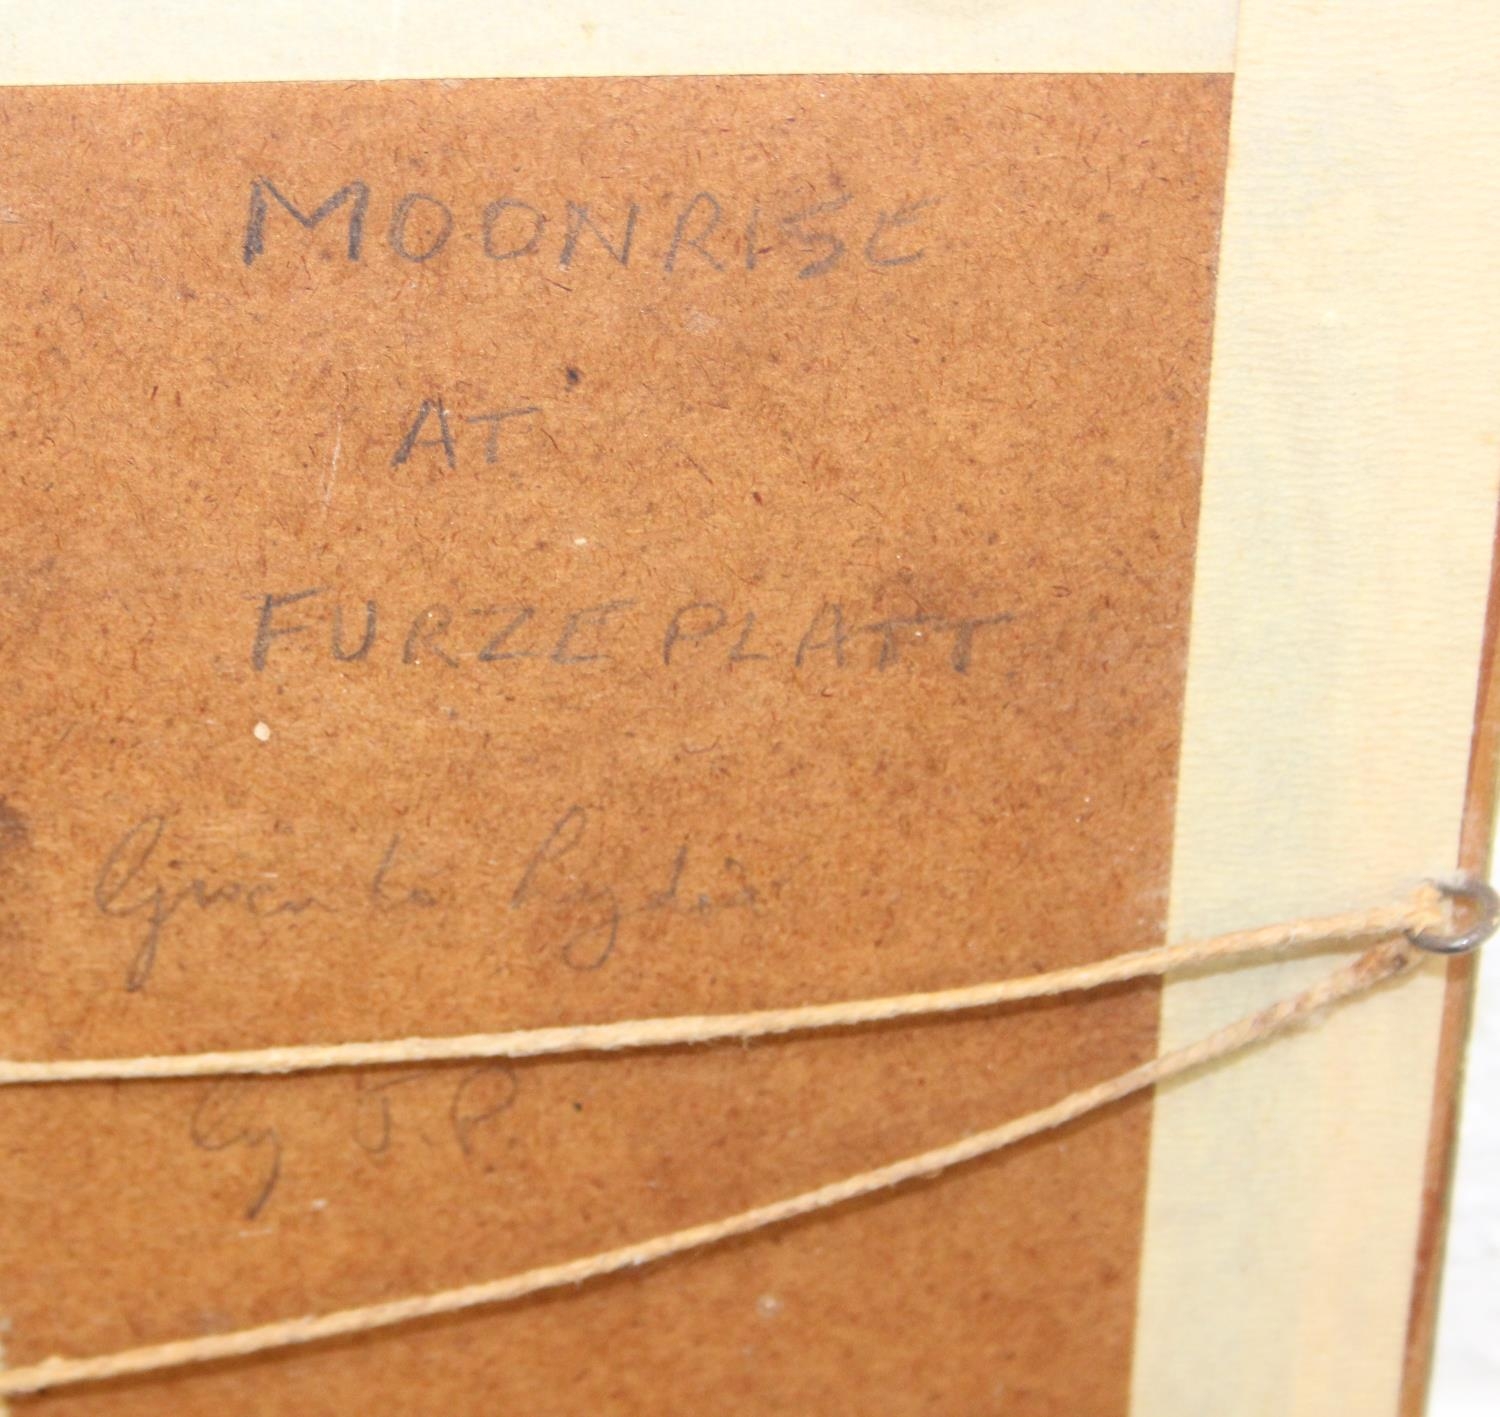 MOONRISE
AT
FURZE PLATT
Given to Lydia
by J.P.